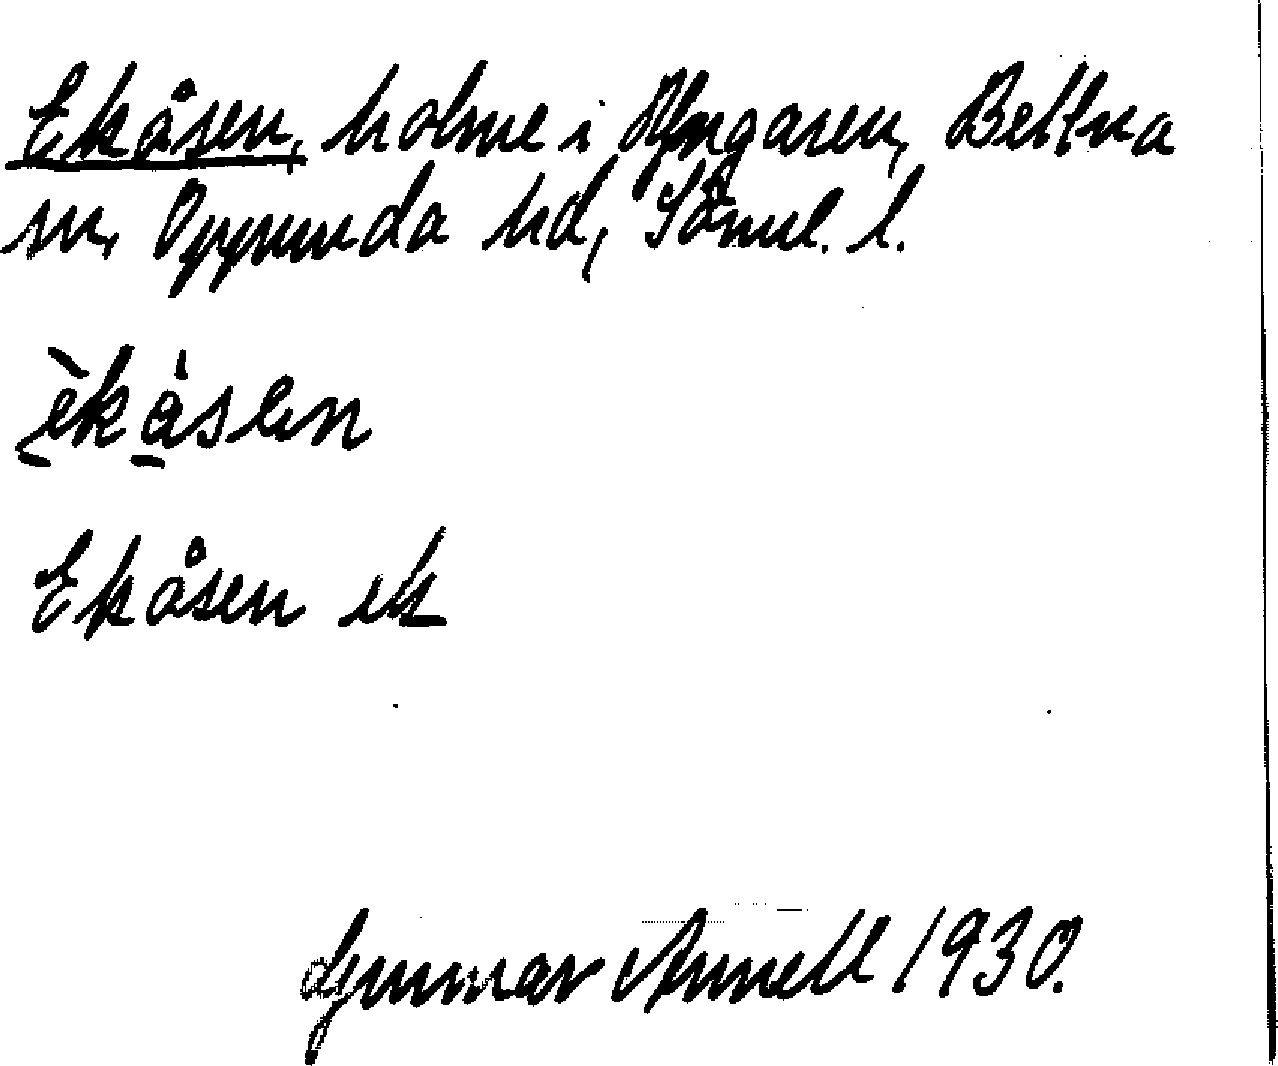 Ekåsen, holme i Yngaren, Bettna
sn, Oppunda hd, Söml. l.
èkåsen
Ekåsen ek
Gunnar Annell 1930.